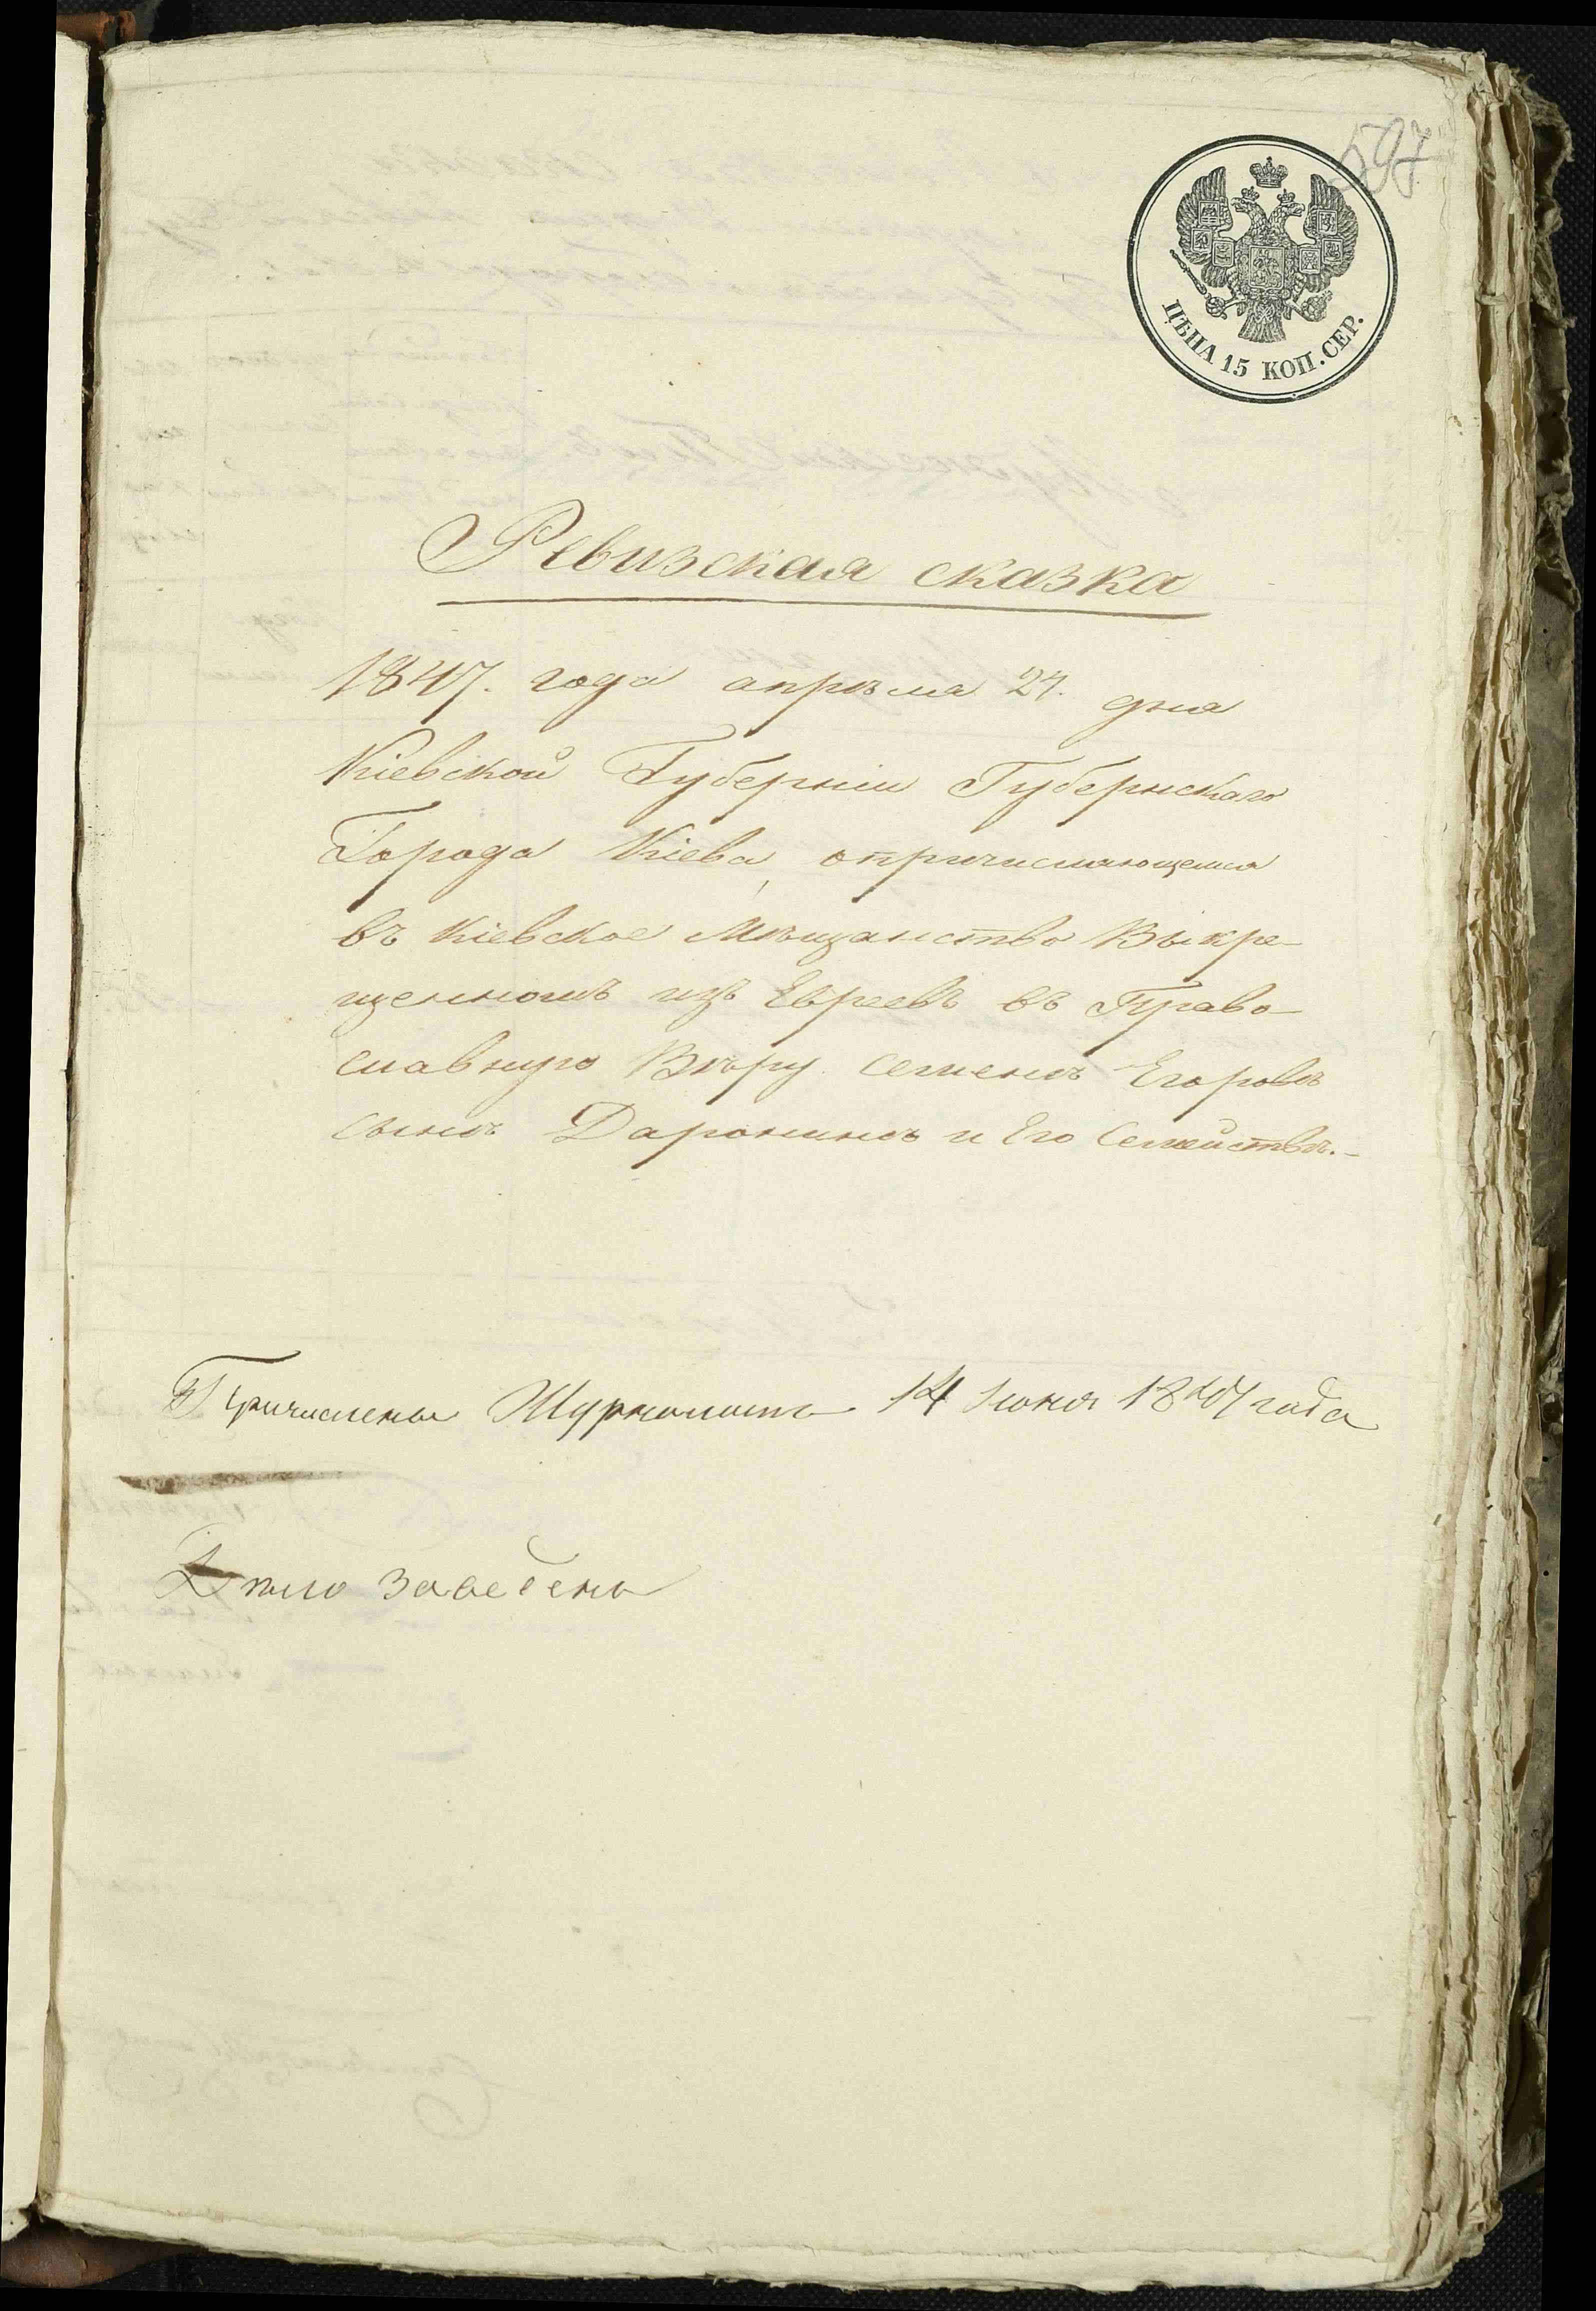 597
ЦѢНА 15 КОП. СЕР.
Ревизская сказка
1847. года апрѣля 24. дня
Кіевской Губерніи Губернскаго
Города Кіева, о причисляющемся
въ Кіевское Мѣщанство Выкре-
щенномъ изъ Евреевъ въ Право-
славную Вѣру Семенѣ Егоровѣ
сынѣ Даронинѣ и Его Семействѣ.-
Причислены 14 Іюня 1847 года
Дѣло заведено